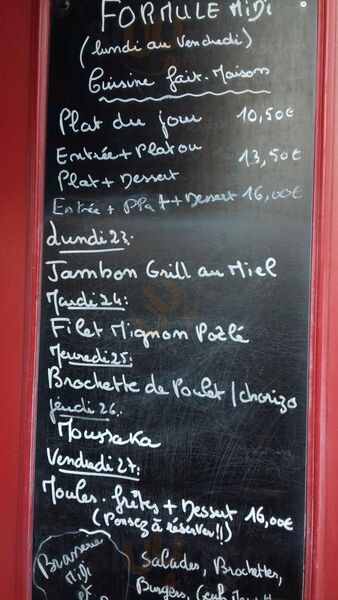 FORMULE MIDI
(lundi au Vendredi)
Cuisine fait-Maison
Plat du jour 10,50€
Entrée + Plat ou
Plat + Dessert 13,50€
Entrée + Plat + Dessert 16,00€
Lundi 23.
Jambon Grill au Miel
Mardi 24:
Filet Mignon Poêlé
Mercredi 25:
Brochette de Poulet / chorizo
jeudi 26.
Moussaka
Vendredi 27:
Moules-frites + Dessert 16,00€
(Pensez à réserver!!)
Brasserie
Midi
et
Salades, Brochettes,
Burgers,